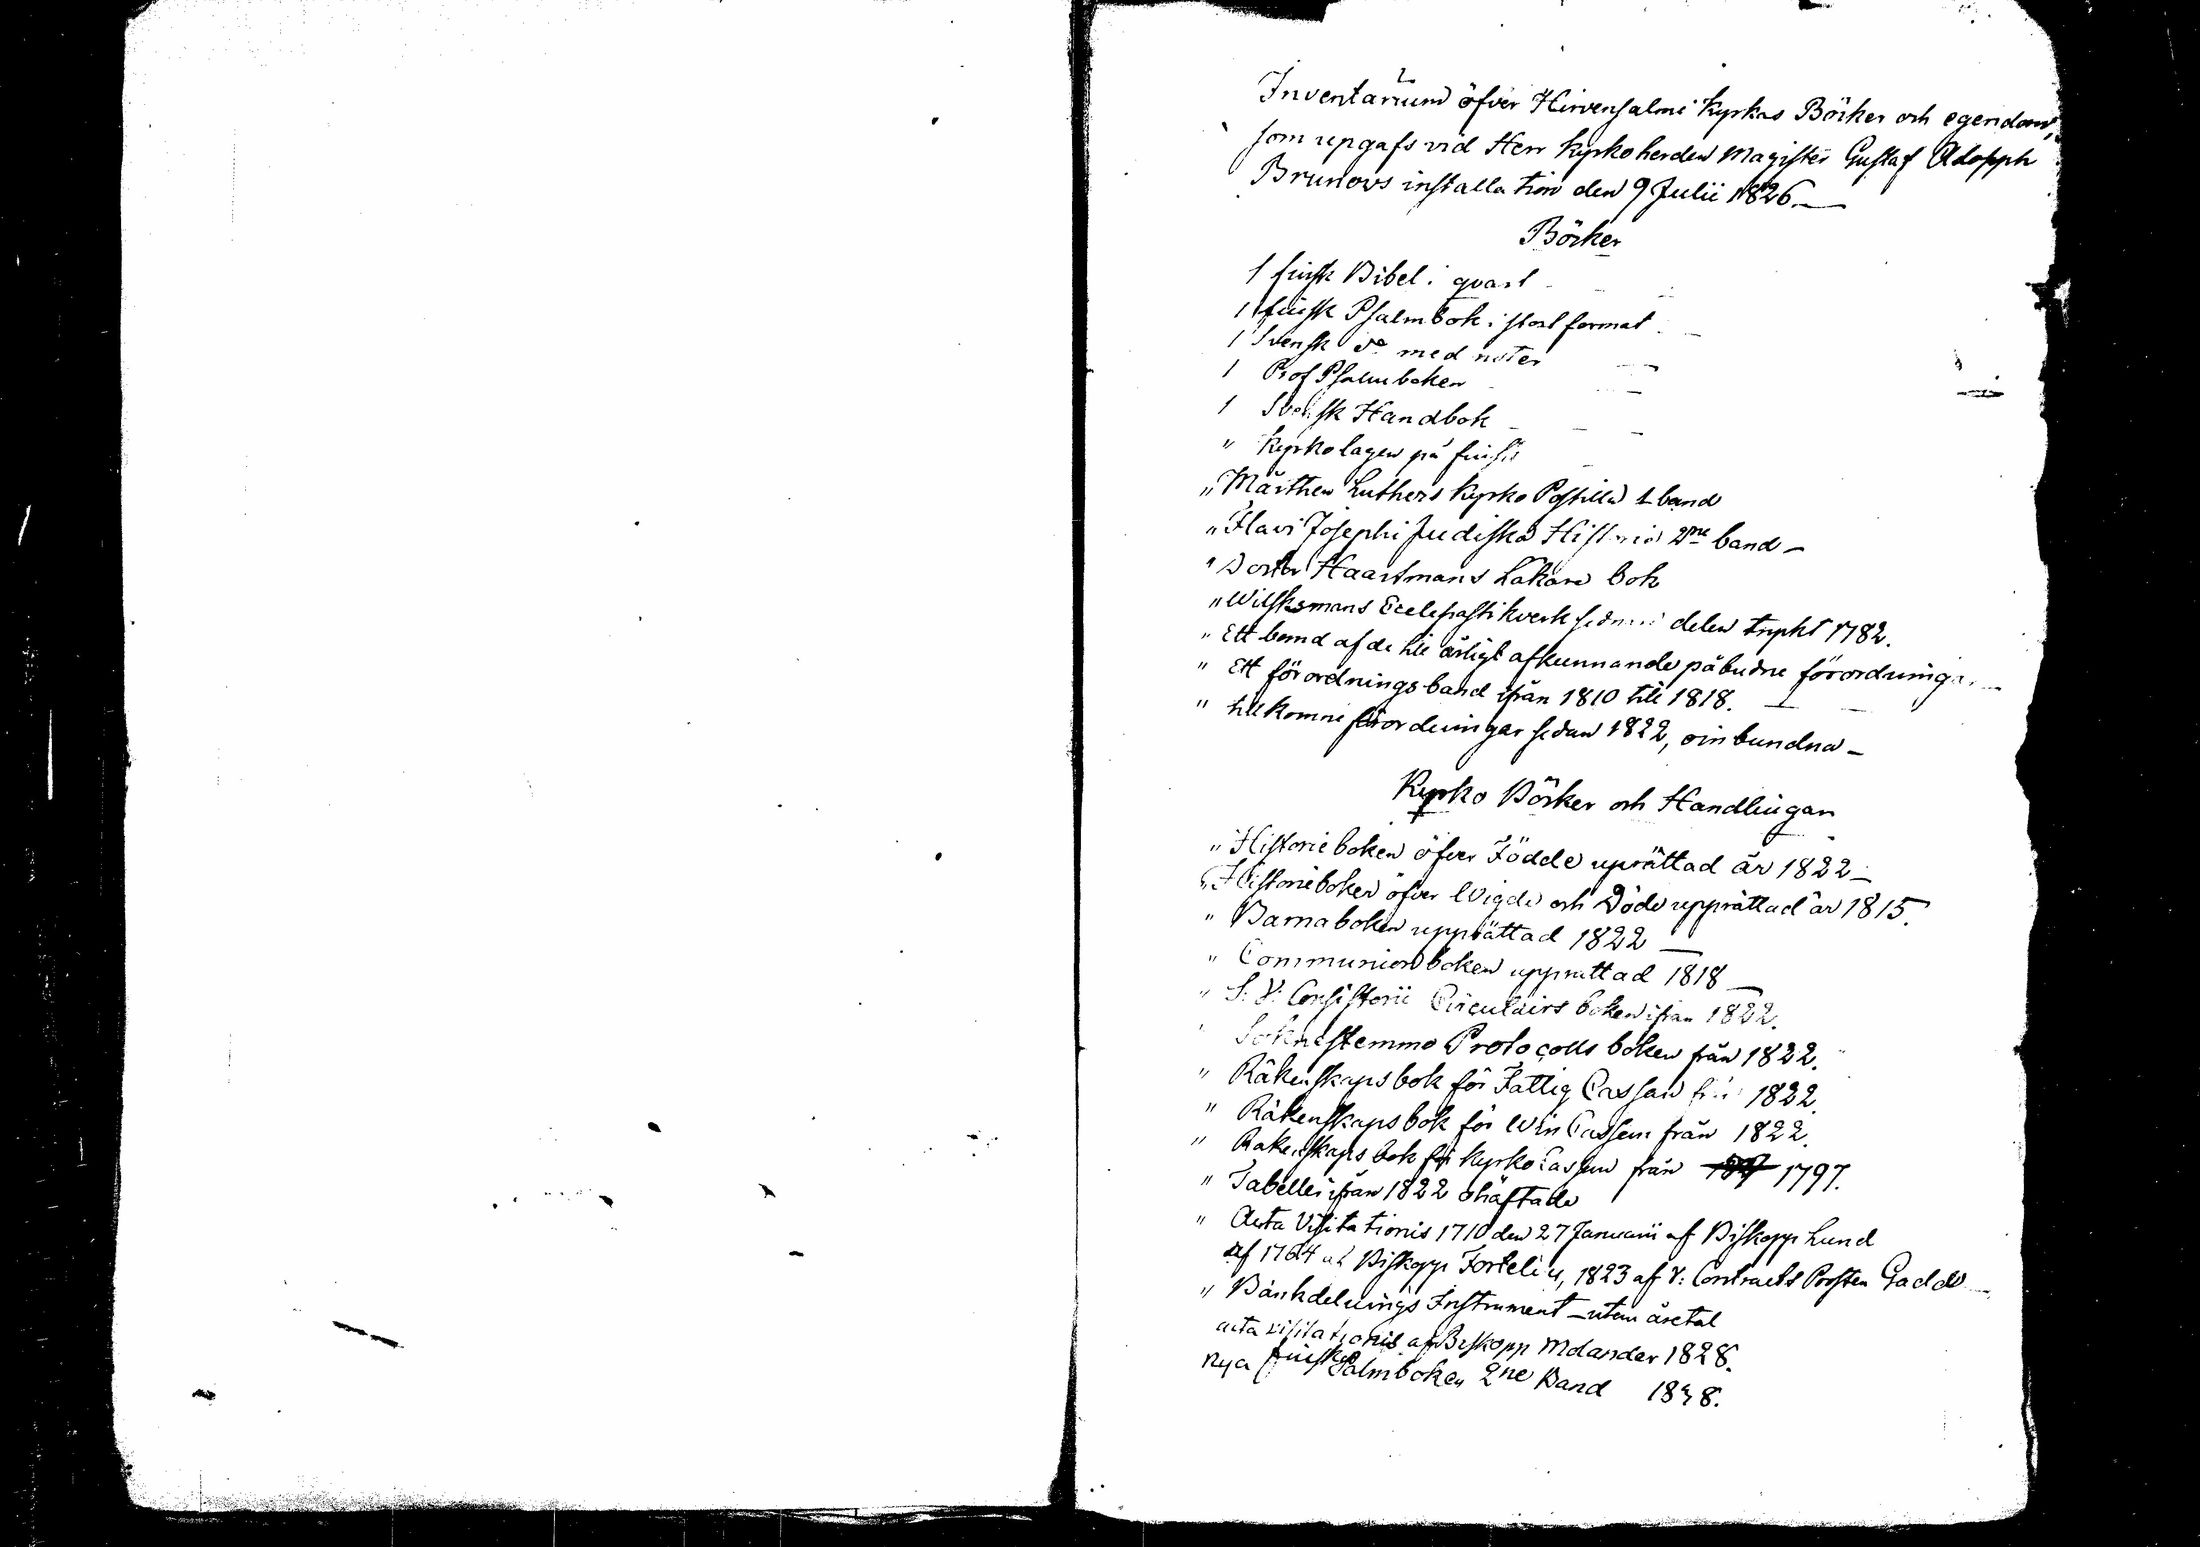 Inventarium öfver Hirvensalmi Kyrkas Böcker och egendom,
som upgafs vid Herr Kyrkoherden Magister Gustaf Adolpph
Brunovs installation den 9 Julii 1826.
Böcker
1 finsk Bibel i qvart
1 finsk Psalmbok i stort format
1 Svensk do med noter
1 Prof Psalmboken
1 Svensk Handbok
" Kyrkolagen på finska
" Mårthen Luthers Kyrko Postilla 1 band
" Flavi Josephi Judiska Historia 2ne band
" Doctor Haartmans Läkare bok
" Wilskmans Ecclesiastikverk sednare delen tryckt 1782.
" Ett band af de till årligt afkunnande påbudne förordningar
" Ett förordnings band ifrån 1810 till 1818.
" tillkomne förordningar sedan 1822, oinbundna
Kyrko Böcker och Handlingar
" Historieboken öfver Födde uprättad år 1822
" Historieboken öfver Wigde och Döde upprättad år 1815.
" Barnaboken upprättad 1822
" Communionboken upprättad 1818
" S: V: Consistorii Circulairs boken ifrån 1822.
" Sokne stemmo Protocolls boken från 1822.
" Räkenskaps bok för Fattig Cassan från 1822.
" Räkenskaps bok för Win Cassan från 1822.
" Räkenskaps bok för Kyrko Cassan från 1797.
" Tabeller ifrån 1822 ohäftade
" Acta Visitationis 1710 den 27 Januarii af Biskopp Lund
af 1764 af Biskopp Fortelius, 1823 af V: Contracts Prosten Gadd
" Bänkdelnings Instrument utan åretal
acta visitationis af Biskopp Molander 1828.
Nya finska Psalmboken 2ne Band 1838.